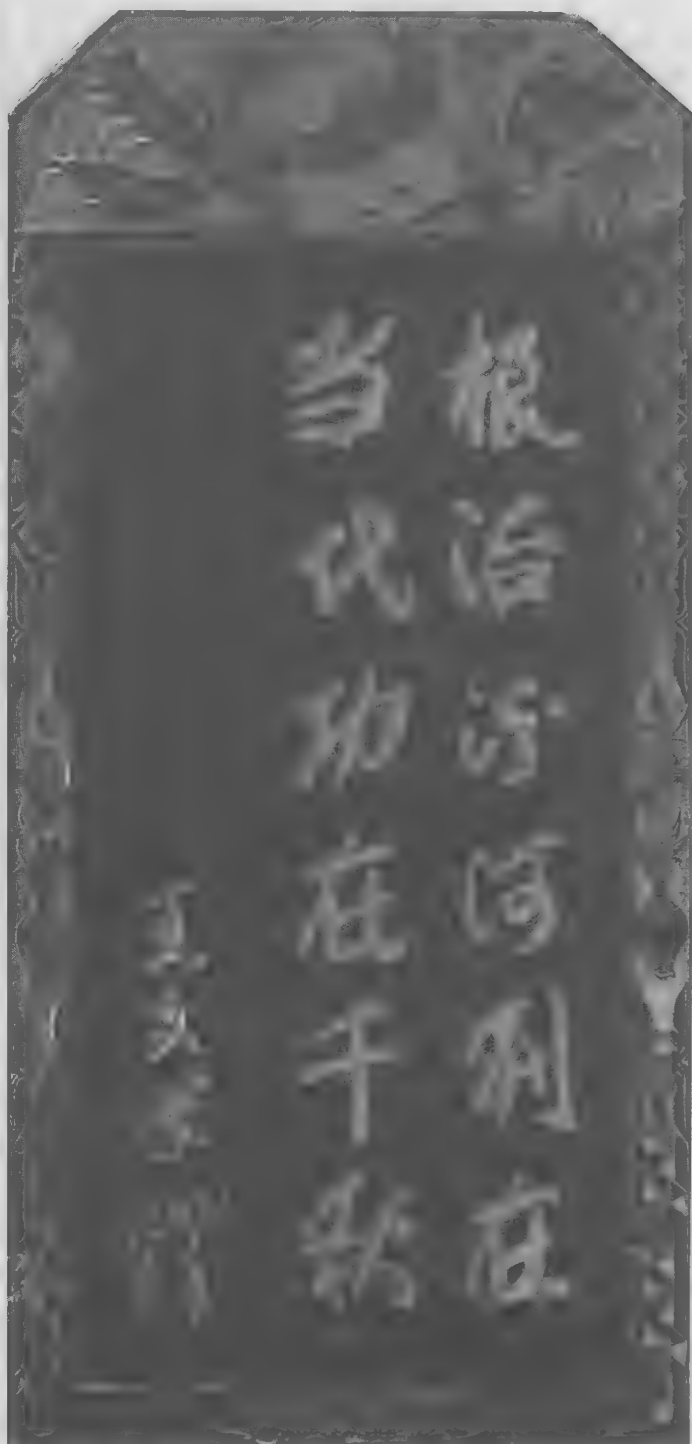 根治汾河利在
当代功在千秋